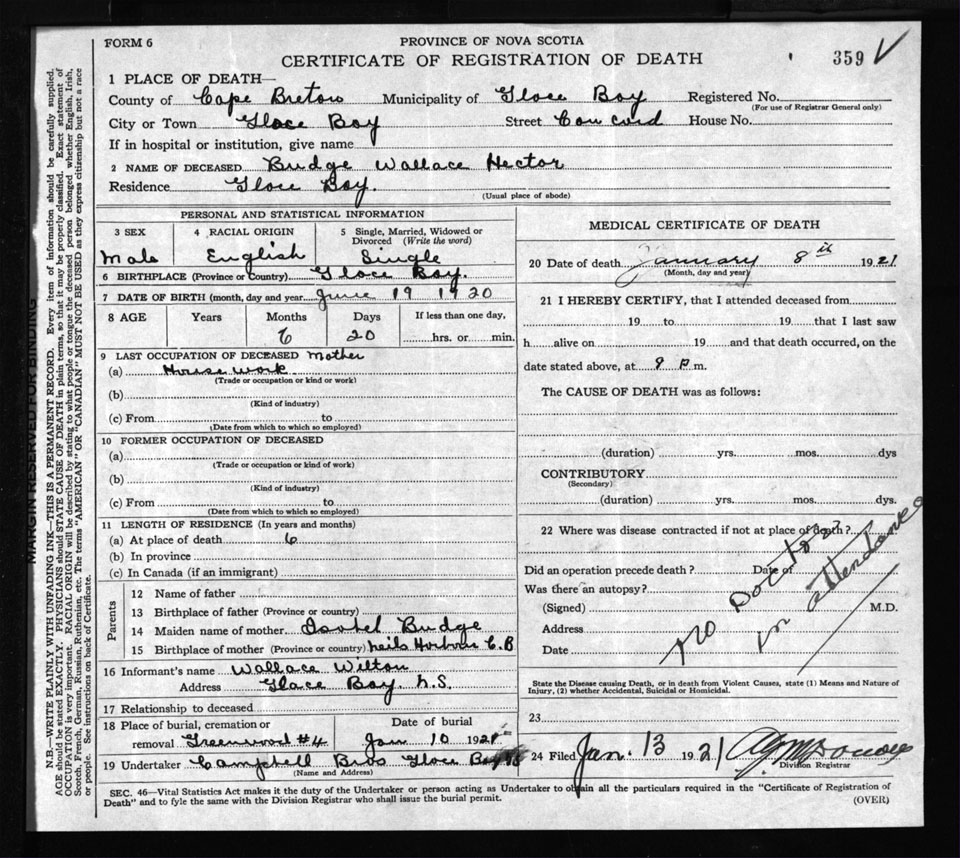 FORM 6
PROVINCE OF NOVA SCOTIA
CERTIFICATE OF REGISTRATION OF DEATH
359
1 PLACE OF DEATH—
County of Cape Breton Municipality of Glace Bay Registered No.
(For use of Registrar General only)
City or Town Glace Bay Street House No.
If in hospital or institution, give name
2 NAME OF DECEASED Budge Wallace Hector
Residence Glace Bay.
(Usual place of abode)
PERSONAL AND STATISTICAL INFORMATION
3 SEX
Male
4 RACIAL ORIGIN
English
5 Single, Married, Widowed or
Divorced (Write the word)
Single
6 BIRTHPLACE (Province or Country) Glace Bay.
7 DATE OF BIRTH (month, day and year) June 19 1920
8 AGE Years Months Days If less than one day,
6 20 hrs. or min.
9 LAST OCCUPATION OF DECEASED Mother
(a) House work
(Trade or occupation or kind or work)
(b)
(Kind of industry)
(c) From to
(Date from which to which so employed)
10 FORMER OCCUPATION OF DECEASED
(a)
(Trade or occupation or kind of work)
(b)
(Kind of industry)
(c) From to
(Date from which to which so employed)
11 LENGTH OF RESIDENCE (In years and months)
(a) At place of death 6
(b) In province
(c) In Canada (if an immigrant)
Parents
12 Name of father
13 Birthplace of father (Province or country)
14 Maiden name of mother Isobel Budge
15 Birthplace of mother (Province or country) Neils Harbour C.B
16 Informant's name Wallace Wilton
Address Glace Bay. N.S.
17 Relationship to deceased
18 Place of burial, cremation or
removal Greenwood #4
Date of burial
Jan 10 1921
19 Undertaker Campbell Bros Glace Bay
(Name and Address)
MEDICAL CERTIFICATE OF DEATH
20 Date of death January 8th 1921
(Month, day and year)
21 I HEREBY CERTIFY, that I attended deceased from
19 to 19 that I last saw
h alive on 19 and that death occurred, on the
date stated above, at 8 P m.
The CAUSE OF DEATH was as follows:
(duration) yrs. mos. dys
CONTRIBUTORY
(Secondary)
(duration) yrs. mos. dys.
22 Where was disease contracted if not at place of death?
Did an operation precede death? Date of
Was there an autopsy?
(Signed) M.D.
Address
Date
No Doctor
in attendance
State the Disease causing Death, or in death from Violent Causes, state (1) Means and Nature of
Injury, (2) whether Accidental, Suicidal or Homicidal.
23
24 Filed Jan. 13 1921
Division Registrar
SEC. 46—Vital Statistics Act makes it the duty of the Undertaker or person acting as Undertaker to obtain all the particulars required in the "Certificate of Registration of
Death" and to fyle the same with the Division Registrar who shall issue the burial permit.
(OVER)
MARGIN RESERVED FOR BINDING
N.B.—WRITE PLAINLY WITH UNFADING INK—THIS IS A PERMANENT RECORD. Every item of information should be carefully supplied.
AGE should be stated EXACTLY. PHYSICIANS should STATE CAUSE OF DEATH in plain terms, so that it may be properly classified. Exact statement of
OCCUPATION is very important. RACIAL ORIGIN will be described by stating to what people or tongue the deceased person belonged whether English, Irish,
Scotch, French, German, Russian, Ruthenian, etc. The terms "AMERICAN" or "CANADIAN" MUST NOT BE USED as they express citizenship but not a race
or people. See instructions on back of Certificate.